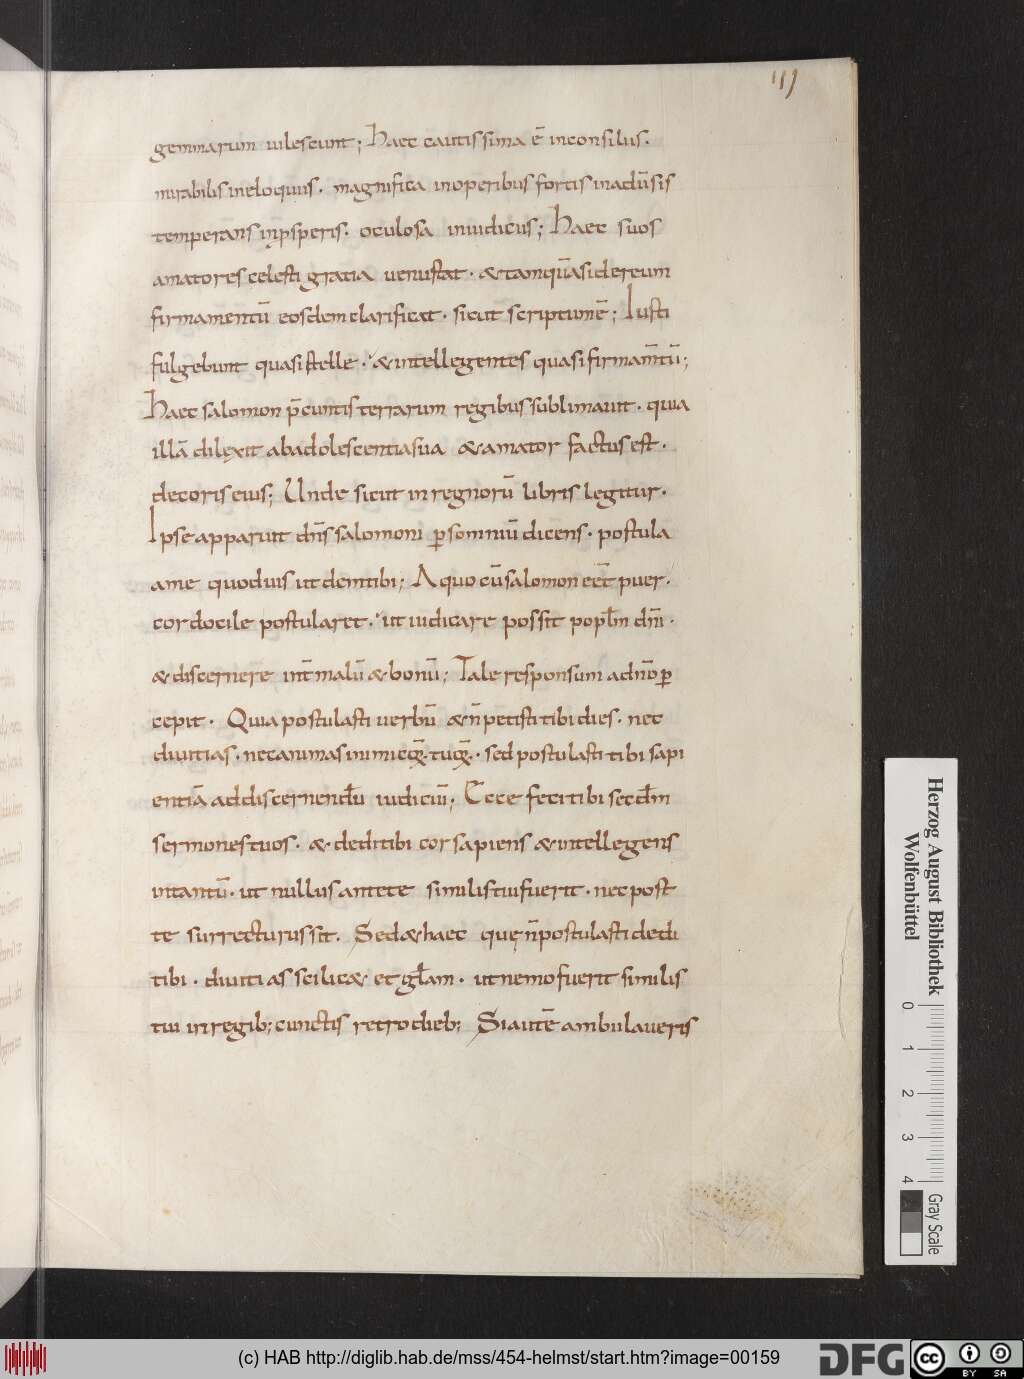 119
gemmarum uilescunt; Haec cautissima ē inconsilus.
mirabilis ineloquiis. magnifica inoperibus fortis inaduersis
temperans inprosperis. oculosa iniudicus; Haec suos
amatores celesti gratia uenustat. & tamquā sidereum
firmamentū eosdem clarificat. sicut scriptum ē; Iusti
fulgebunt quasi stelle. & intellegentes quasi firmam̄tū;
Haec salomon p̄ cunctis terrarum regibus sublimauit. quia
illā dilexit abadolescentia sua & amator factus est.
decoris eius; Unde sicut in regnorū libris legitur.
Ipse apparuit dn̄s salomoni ꝑ somniū dicens. postula
ame quoduis ut dem tibi; A quo cū salomon eēt puer.
cor docile postularet. ut iudicare possit popl̄m dn̄i.
& discernere int̄ malū & bonū; Tale responsum adn̄o ꝑ
cepit. Quia postulasti uerbū & n̄ petisti tibi dies. nec
diuitias. nec animas inimicoꝝ tuoꝝ. sed postulasti tibi sapi
entiā addiscernendū iudiciū; Ecce feci tibi secdm̄
sermones tuos. & dedi tibi cor sapiens & intellegens
intantū. ut nullus ante te similis tui fuerit. nec post
te surrecturus sit. Sed & haec quę n̄ postulasti dedi
tibi. diuitias scilic& et gl̄am. ut nemo fuerit similis
tui in regib; cunctis retro dieb; Si autē ambulaueris
Herzog August Bibliothek
Wolfenbüttel
0 1 2 3 4
Gray Scale
(c) HAB http://diglib.hab.de/mss/454-helmst/start.htm?image=00159
DFG
cc
BY SA